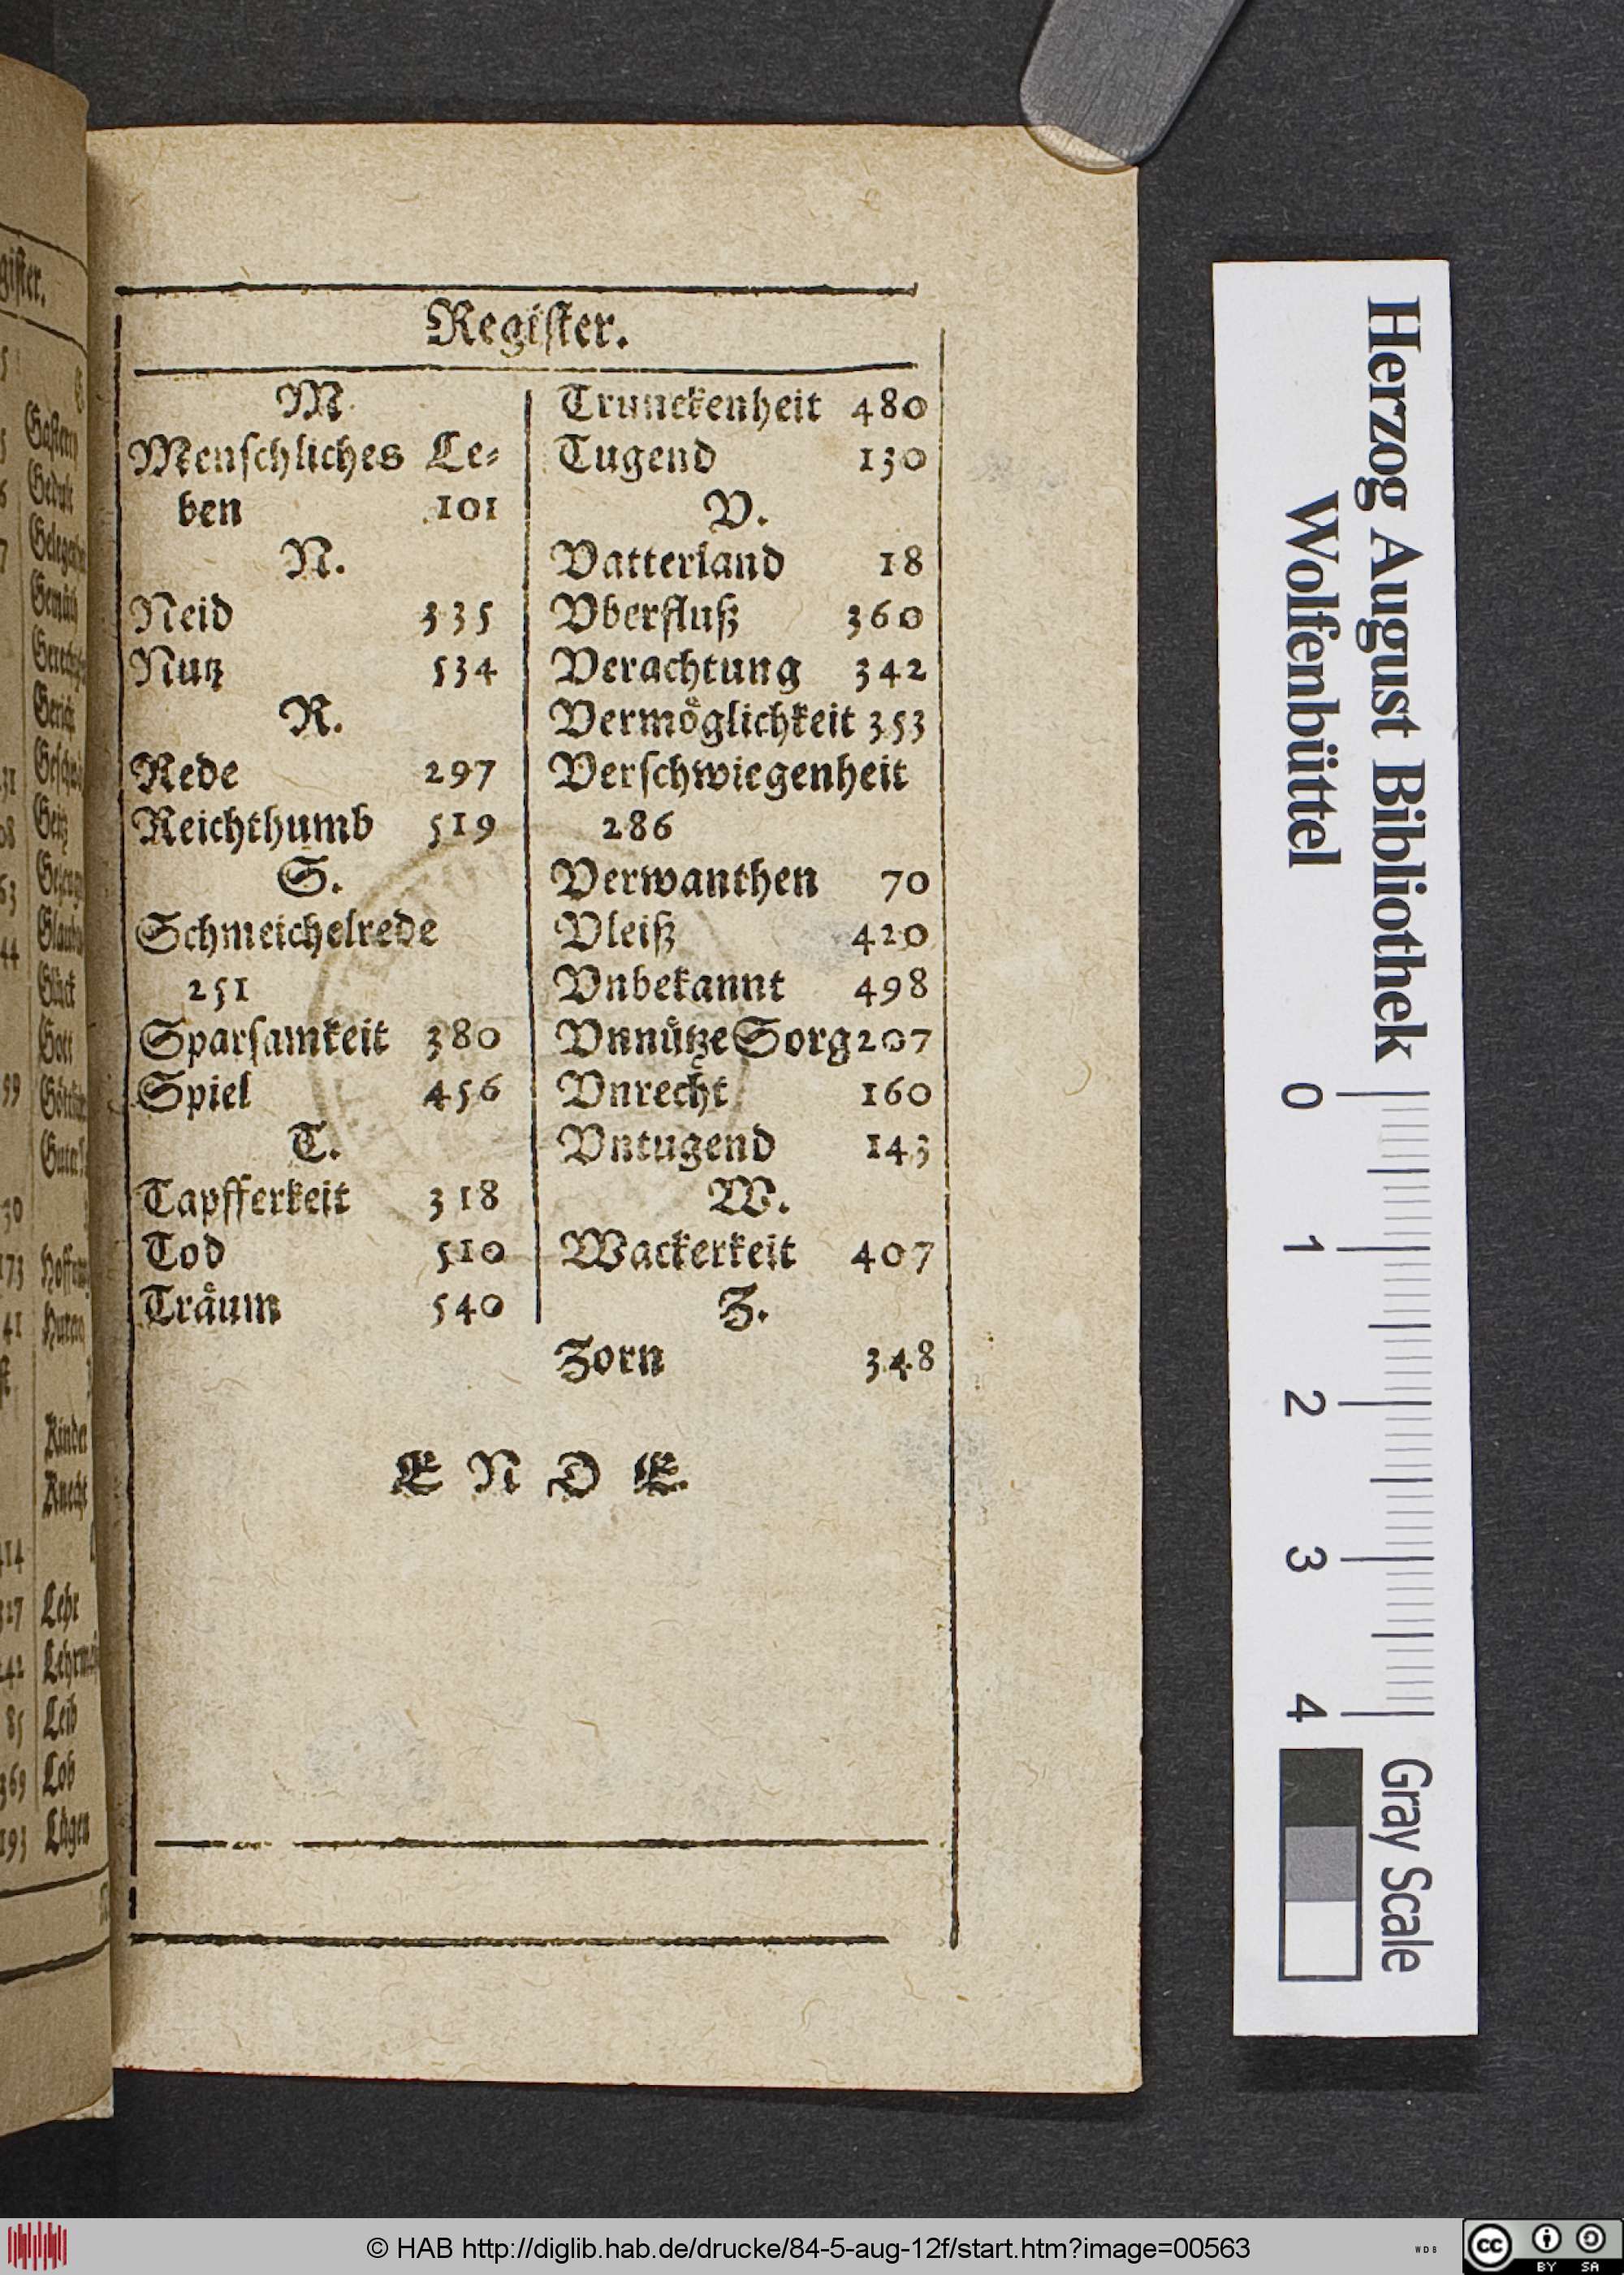 Register.
M.
Menschliches Le⸗
ben 101
N.
Neid 335
Nutz 534
R.
Rede 297
Reichthumb 519
S.
Schmeichelrede
251
Sparsamkeit 380
Spiel 456
T.
Tapfferkeit 318
Tod 510
Träum 540
Trunckenheit 480
Tugend 130
V.
Vatterland 18
Vberfluß 360
Verachtung 342
Vermöglichkeit 353
Verschwiegenheit
286
Verwanthen 70
Vleiß 420
Vnbekannt 498
Vnnütze Sorg 207
Vnrecht 160
Vntugend 143
W.
Wackerkeit 407
Z.
Zorn 348
E N D E.
gister.
Kinder
Knecht
Lehr
Leib
Lob
Lügen
Herzog August Bibliothek
Wolfenbüttel
0 1 2 3 4
Gray Scale
© HAB http://diglib.hab.de/drucke/84-5-aug-12f/start.htm?image=00563
WDB
cc BY SA